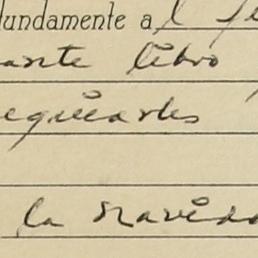 fundamente al
ante libro
equearles
la navida